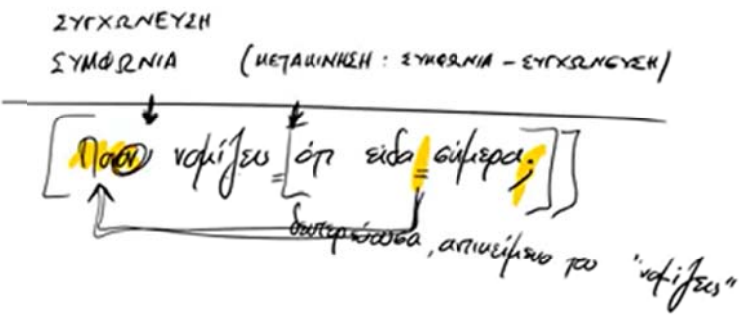 ΣΥΓΧΩΝΕΥΣΗ
ΣΥΜΦΩΝΙΑ (ΜΕΤΑΚΙΝΗΣΗ : ΣΥΜΦΩΝΙΑ – ΣΥΓΧΩΝΕΥΣΗ)
[Ποιον νομίζεις _ [ότι είδα _ σήμερα ;]]
δευτερεύουσα, αντικείμενο του "νομίζεις"